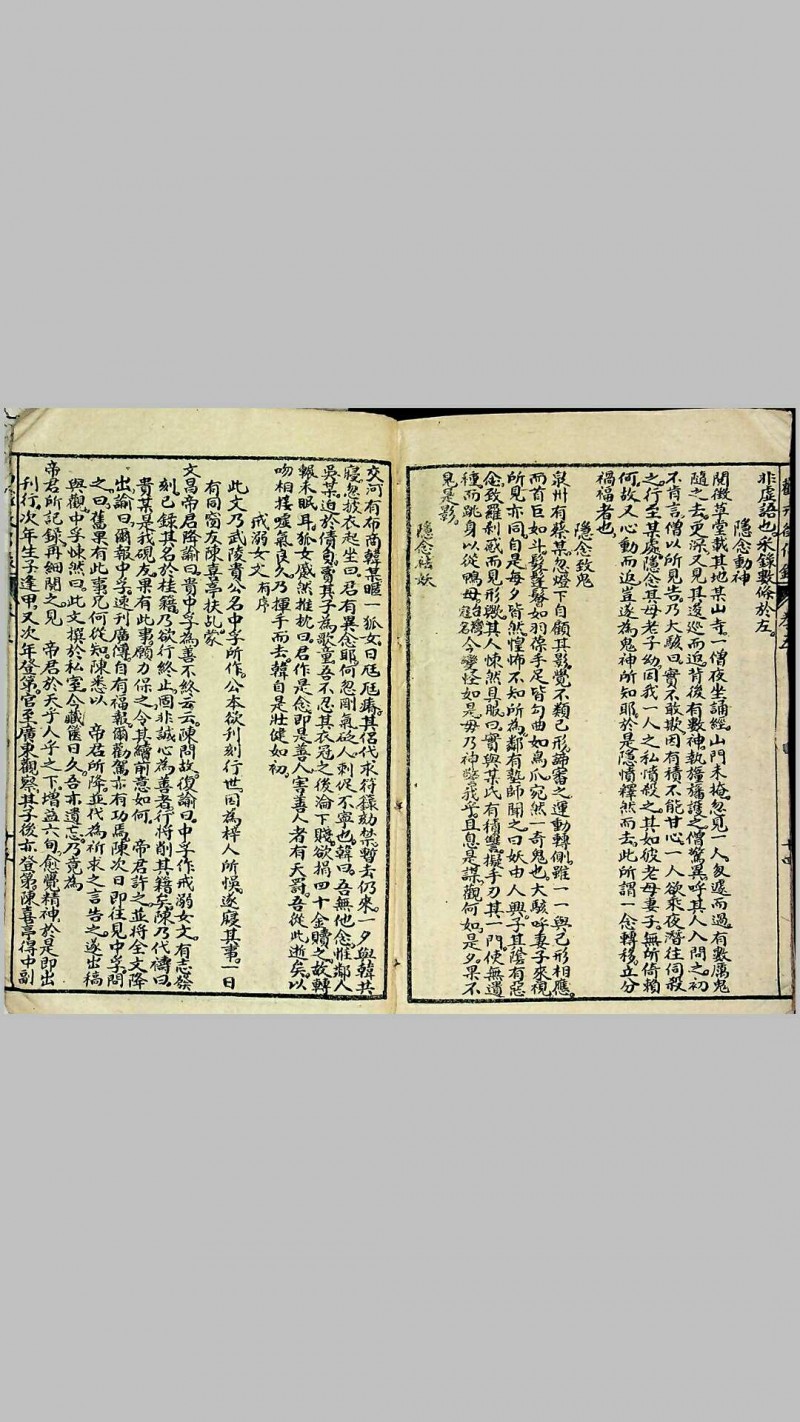 非虛語也。采錄數條於左。
隱念動神
閱微草堂載其地某山寺。一僧夜坐誦經。山門未掩。忽見一人匆遽而過。有數厲鬼
隨之去。更深又見其逡巡而返。背後有數神執旛幢護之。僧驚異。呼其人入問之。初
不肯言。僧以所見告。乃大駭曰。實不敢欺。因有積不能甘心一人。欲乘夜潛往伺殺
之。行至某處。隱念其母老子幼。因我一人之私憤殺之。其如彼老母妻子。無所倚賴
何。故又心動而返。豈遂為鬼神所知耶。於是隱憤釋然而去。此所謂一念轉移。立分
禍福者也。
隱念致鬼
泉州有蔡某。忽燈下自顧其影。覺不類己形。諦審之。運動轉側。雖一一與己形相應。
而首巨如斗。髮鬖鬖如羽葆。手足皆勾曲如鳥爪。宛然一奇鬼也。大駭。呼妻子來視。
所見亦同。自是每夕皆然。惶怖不知所為。鄰有塾師聞之曰。妖由人興。子其陰有惡
念致羅剎感而見形歟。其人悚然且服曰。實與某氏有積讐。擬手刃其一門。使無遺
種。而跳身以從鴨母。今變怪如是。毋乃神警我乎。且息是謀。觀何如。是夕果不
見是影。
隱念祛妖
交河有布商韓某。暱一狐女。日尪尪瘠。其侶代求符籙劾禁。暫去仍來。一夕與韓共
寢。忽披衣起坐曰。君有異念耶。何忽剛氣砭人。刺促不寧也。韓曰。吾無他念。惟鄰人
吳某迫於債負。賣其子為歌童。吾不忍其衣冠之後淪下賤。欲捐四十金贖之。故轉
輾未眠耳。狐女蹙然推枕曰。君作是念。即是善人。害善人者有天罰。吾從此逝矣。以
吻相接。噓氣良久。乃揮手而去。韓自是壯健如初。
戒溺女文 有序
此文乃武陵貴公名中孚所作。公本欲刋刻行世。因為梓人所悞。遂寢其事。一日
有同窗友陳喜亭扶乩。蒙
文昌帝君降諭曰。貴中孚為善不終云云。陳問故。復諭曰。中孚作戒溺女文。有志發
刻。已錄其名於桂籍。乃欲行終止。固非誠心為善者。行將削其籍矣。陳乃代禱曰。
貴某是我硯友。果有此事。願力保之。令其續前意如何。 帝君許之。並將全文降
出。諭曰。爾報中孚。速刋廣傳。自有福報。爾勸駕亦有功焉。陳次日即往見中孚。問
之曰。舊果有此事。兄何從知。陳悉以 帝君所降。並代為祈求之言告之。遂出稿
與觀。中孚悚然曰。此文撰於私室。今藏篋日久。吾亦遺忘。乃竟為
帝君所記錄。再細閱之。見 帝君於天乎人乎之下。增益六句。愈覺精神。於是即出
刋行。次年生子逢甲。又次年登第。官至廣東觀察。其子後亦登第。陳喜亭得中副